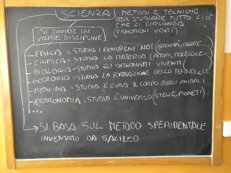 SCIENZA → METODI E TECNICHE
PER STUDIARE TUTTO CIÒ
CHE CI CIRCONDA
(FENOMENI VARI)
SI DIVIDE IN
VARIE DISCIPLINE
FISICA = STUDIA I FENOMENI
CHIMICA = STUDIA LA MATERIA (ATOMI, MOLECOLE
BIOLOGIA = STUDIA GLI ORGANISMI VIVENTI
GEOLOGIA = STUDIA LA FORMAZIONE DELLA TERRA
MEDICINA = STUDIA E CURA IL CORPO DEGLI ANIMALI
ASTRONOMIA = STUDIA L'UNIVERSO (STELLE, PIANETI)
→ SI BASA SUL METODO SPERIMENTALE
INVENTATO DA GALILEO